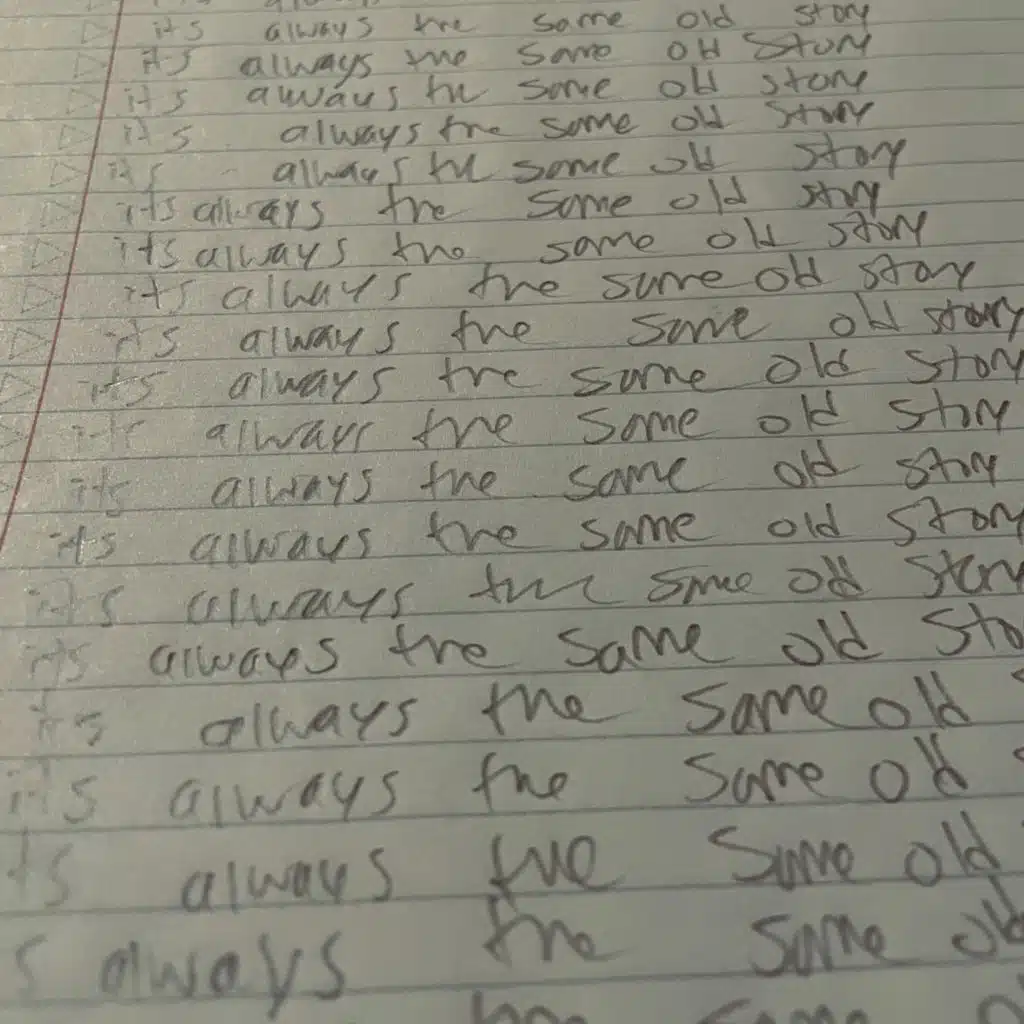 its always the same old story
its always the same old story
its always the same old story
its always the same old story
its always the same old story
its always the same old story
its always the same old story
its always the same old story
its always the same old story
its always the same old story
its always the same old story
its always the same old story
its always the same old story
its always the same old story
its always the same old sto
its always the same old
its always the same old
ts always the same old
s always the same old